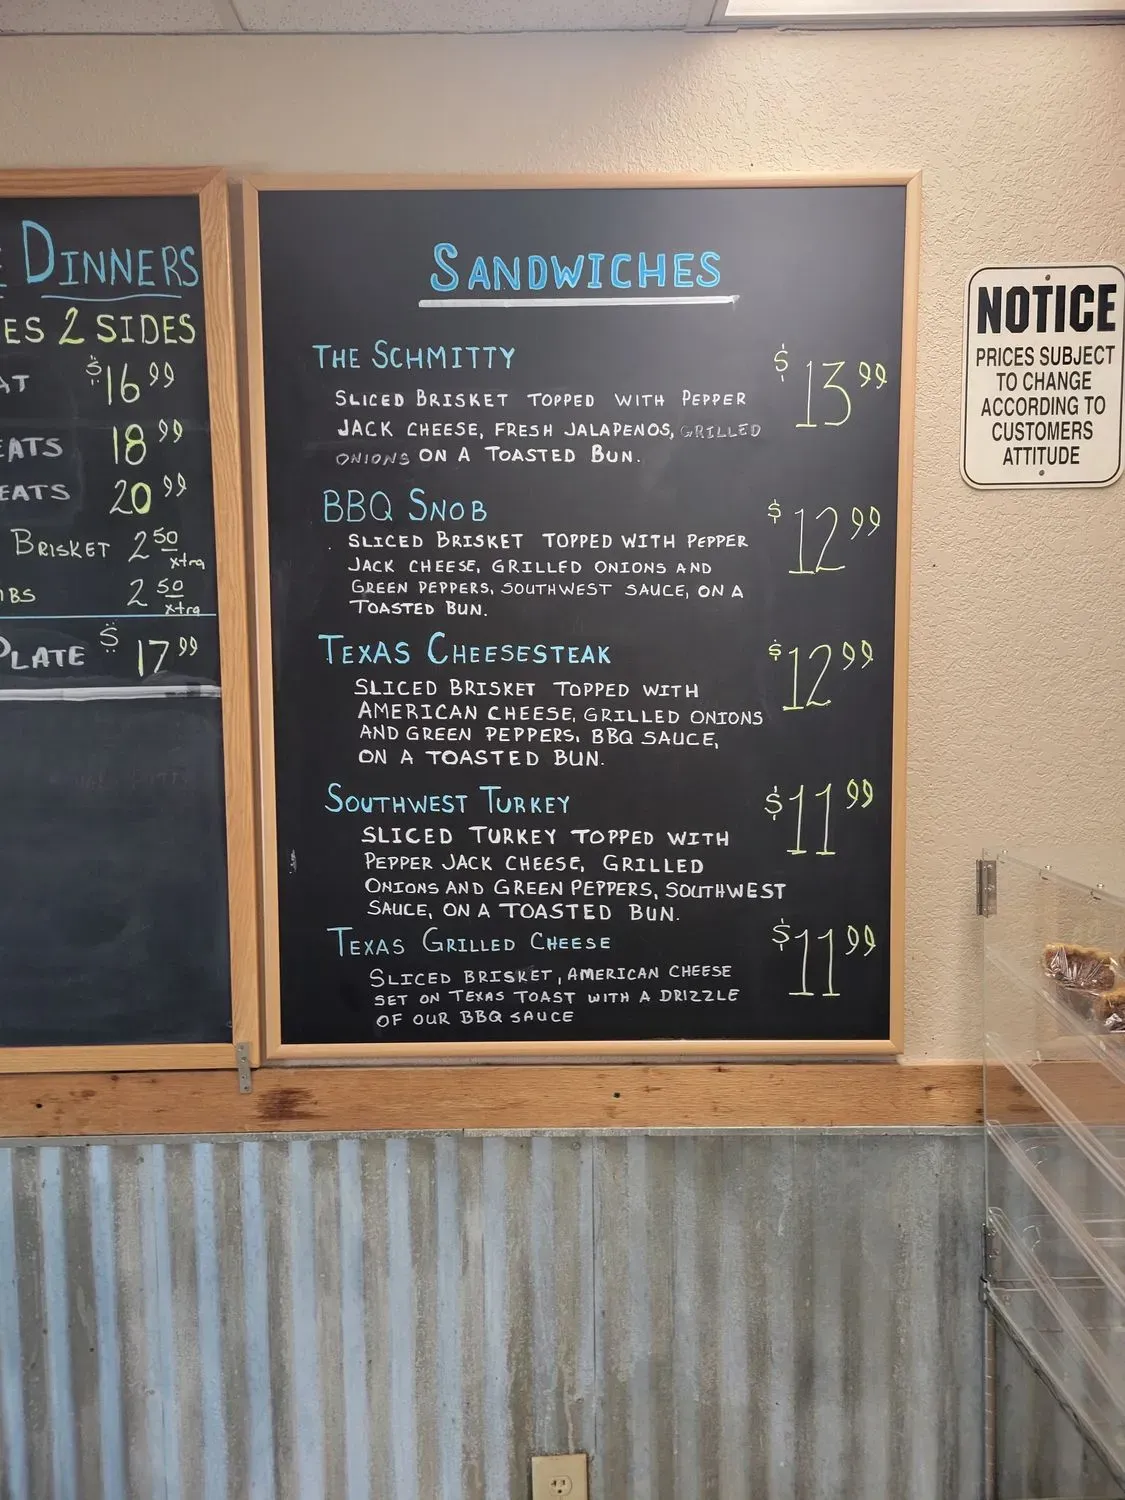 DINNERS
ES 2 SIDES
AT $16.99
EATS 18.99
EATS 20.99
BRISKET 2.50 xtra
IBS 2.50 xtra
PLATE $17.99
SANDWICHES
THE SCHMITTY $13.99
SLICED BRISKET TOPPED WITH PEPPER
JACK CHEESE, FRESH JALAPENOS, GRILLED
ONIONS ON A TOASTED BUN.
BBQ SNOB $12.99
SLICED BRISKET TOPPED WITH PEPPER
JACK CHEESE, GRILLED ONIONS AND
GREEN PEPPERS, SOUTHWEST SAUCE, ON A
TOASTED BUN.
TEXAS CHEESESTEAK $12.99
SLICED BRISKET TOPPED WITH
AMERICAN CHEESE, GRILLED ONIONS
AND GREEN PEPPERS, BBQ SAUCE,
ON A TOASTED BUN.
SOUTHWEST TURKEY $11.99
SLICED TURKEY TOPPED WITH
PEPPER JACK CHEESE, GRILLED
ONIONS AND GREEN PEPPERS, SOUTHWEST
SAUCE, ON A TOASTED BUN.
TEXAS GRILLED CHEESE $11.99
SLICED BRISKET, AMERICAN CHEESE
SET ON TEXAS TOAST WITH A DRIZZLE
OF OUR BBQ SAUCE
NOTICE
PRICES SUBJECT
TO CHANGE
ACCORDING TO
CUSTOMERS
ATTITUDE